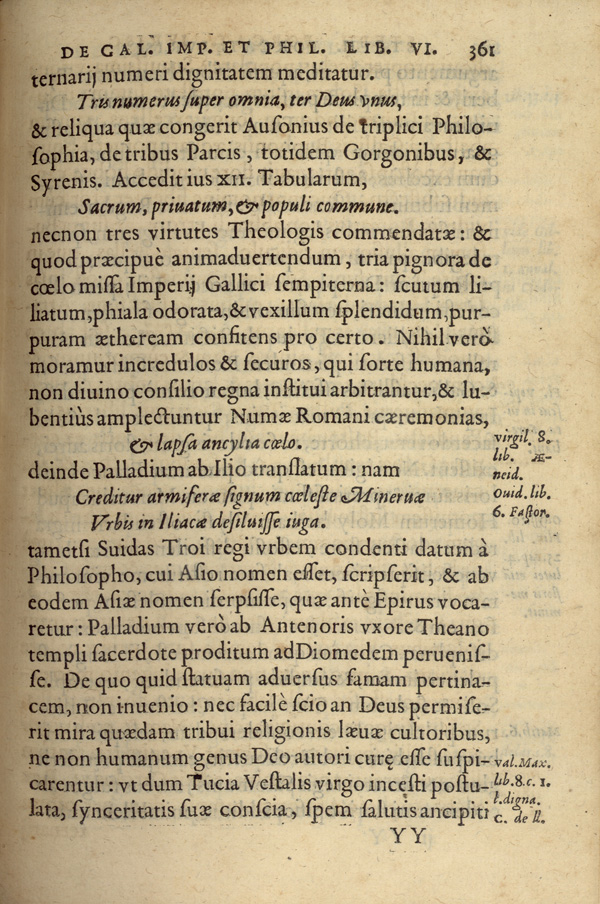 DE GAL. IMP. ET PHIL. LIB. VI. 361
ternarij numeri dignitatem meditatur.
Trus numerus ſuper omnia, ter Deus vnus,
& reliqua quæ congerit Auſonius de triplici Philo-
ſophia, de tribus Parcis, totidem Gorgonibus, &
Syrenis. Accedit ius XII. Tabularum,
Sacrum, priuatum, & populi commune.
necnon tres virtutes Theologis commendatæ: &
quod præcipuè animaduertendum, tria pignora de
cœlo miſſa Imperij Gallici ſempiterna: ſcutum li-
liatum, phiala odorata, & vexillum ſplendidum, pur-
puram ætheream confitens pro certo. Nihil verò
moramur incredulos & ſecuros, qui ſorte humana,
non diuino conſilio regna inſtitui arbitrantur, & lu-
bentiùs amplectuntur Numæ Romani cæremonias,
& lapſa ancylia cœlo.
virgil. 8.
lib. Æ-
neid.
deinde Palladium ab Ilio tranſlatum: nam
Creditur armiferæ ſignum cœleſte Mineruæ
Vrbis in Iliacæ deſiluiſſe iuga.
Ouid. lib.
6. Faſtor.
tametſi Suidas Troi regi vrbem condenti datum à
Philoſopho, cui Aſio nomen eſſet, ſcripſerit, & ab
eodem Aſiæ nomen ſerpſiſſe, quæ antè Epirus voca-
retur: Palladium verò ab Antenoris vxore Theano
templi ſacerdote proditum ad Diomedem perueniſ-
ſe. De quo quid ſtatuam aduerſus famam pertina-
cem, non inuenio: nec facilè ſcio an Deus permiſe-
rit mira quædam tribui religionis læuæ cultoribus,
ne non humanum genus Deo autori curę eſſe ſuſpi-
carentur: vt dum Tucia Veſtalis virgo inceſti poſtu-
lata, ſynceritatis ſuæ conſcia, ſpem ſalutis ancipiti
val. Max.
lib. 8. c. 1.
l. digna.
C. de ll.
YY